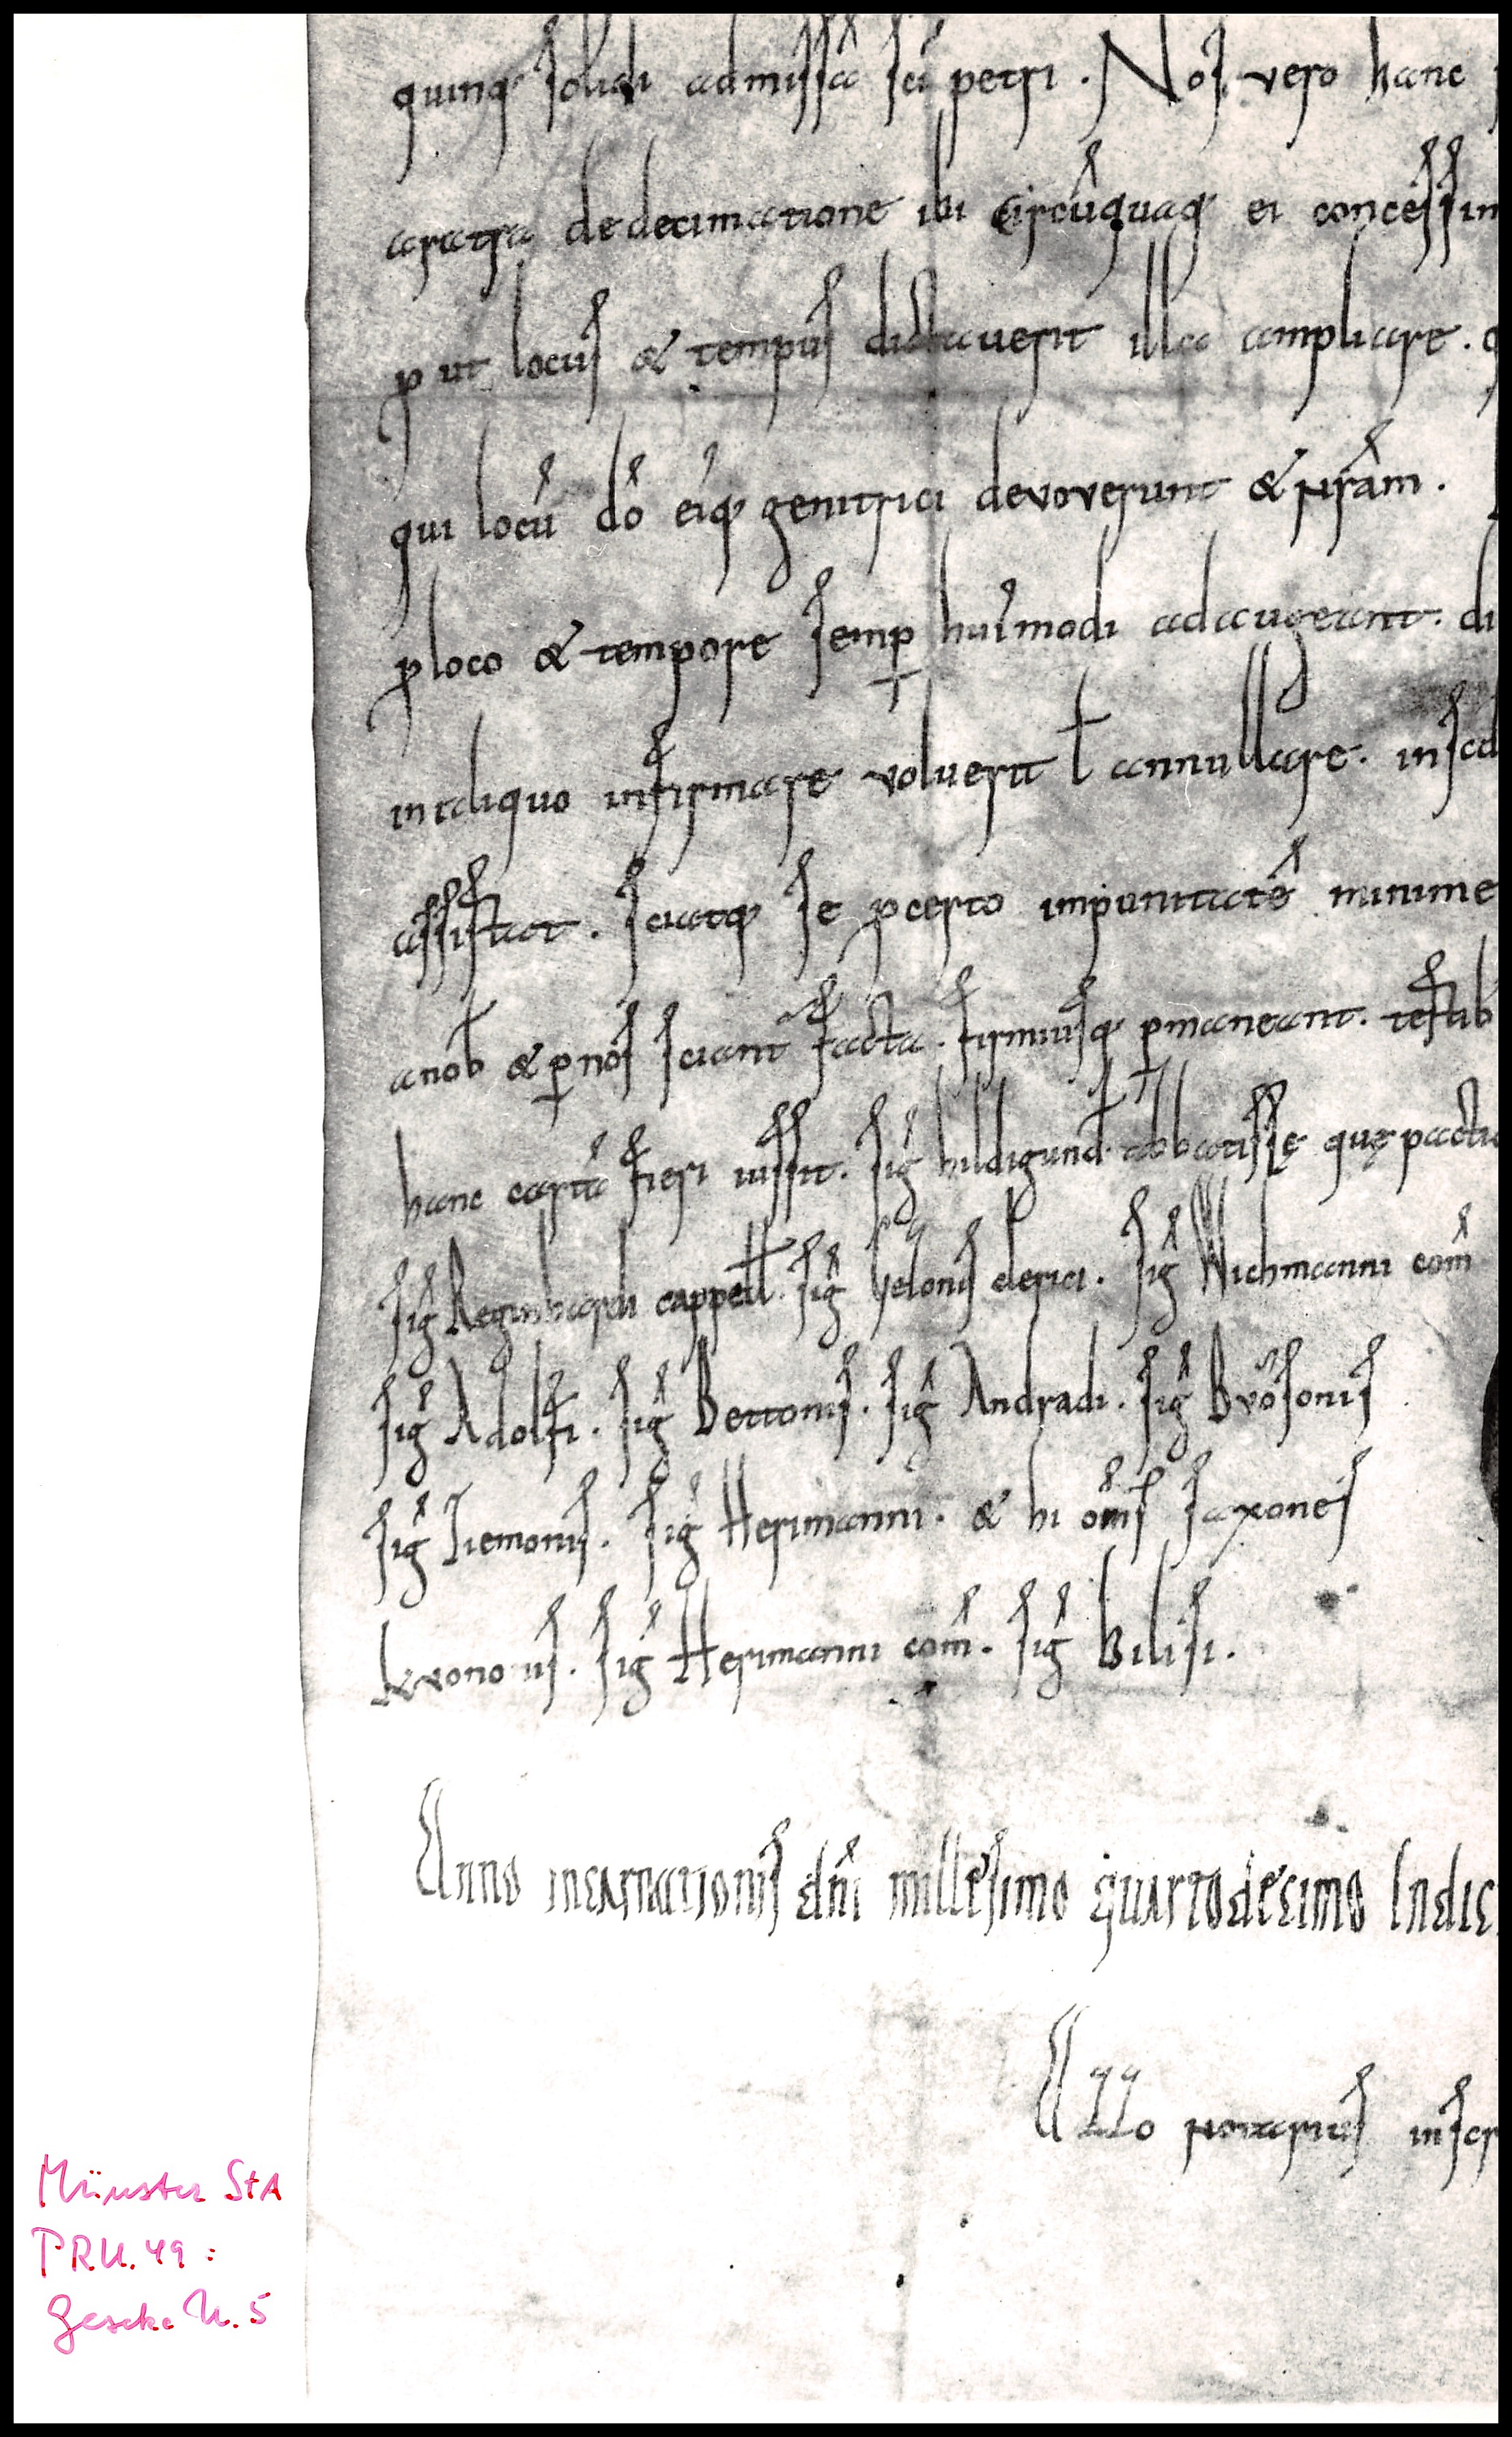 quinq; solidi ad missā sc̄i petri. Nos vero hanc
aratra de decimatione illi circūquaq; ei concessim
p ut locus & tempus dictauerit illa ampliare.
qui locū dō eiq; genitrici devoverunt & nr̄am.
p loco & tempore semp hui'modi adaugeant. di
in aliquo infirmare voluerit ł annullare. in
assistat. sciatq; se p certo impunitatē minime
a nob & p nos sciant facta. firmiusq; pmaneant. testib
hanc cartā fieri iussit. Siḡ hildigund abbatissę quę pacti
Siḡ Reginhardi cappełł. Siḡ clerici. Siḡ Wichmanni com̄
Siḡ Adolfi. Siḡ Bettonis. Siḡ Andradi. Siḡ Bvosonis
Siḡ Tiemonis. Siḡ Herimanni. & hi om̄s saxones
Siḡ Herimanni com̄. Siḡ Bilisi.
Anno incarnationis dn̄i millesimo quartodecimo Indic
Azzo notarius inscr
Münster StA
PRU. 49:
Geseke U. 5